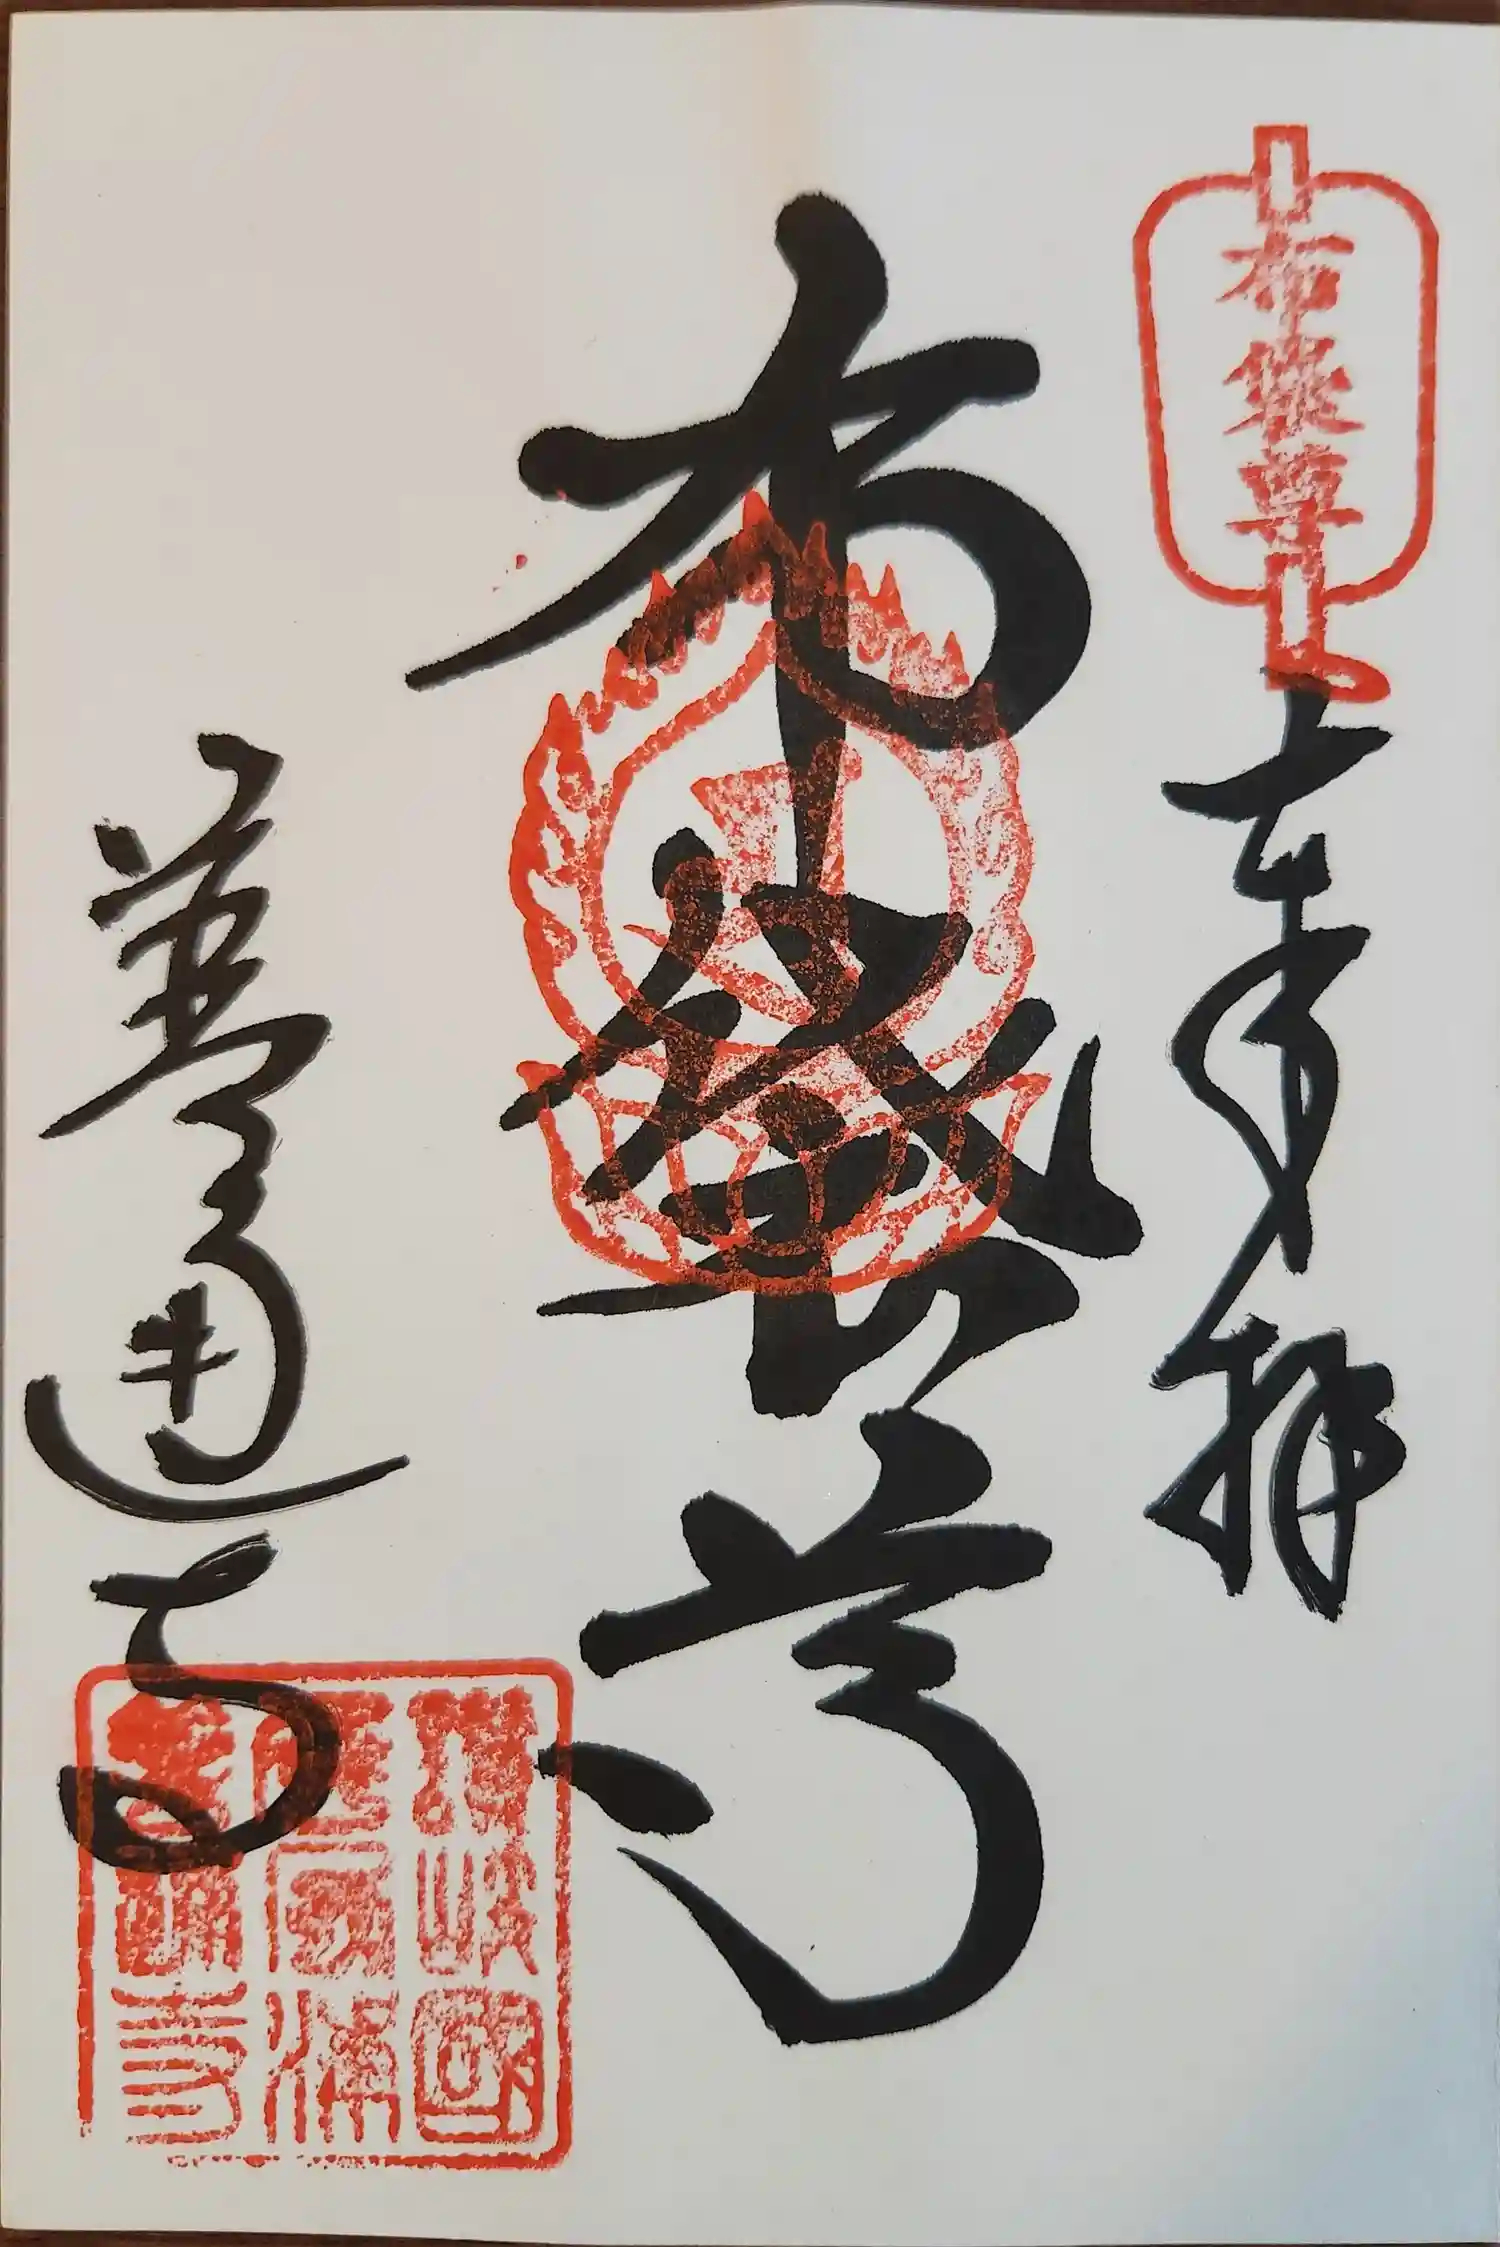 布袋尊
奉拝
布袋尊
善通寺
讃岐國
屏風浦
善通寺